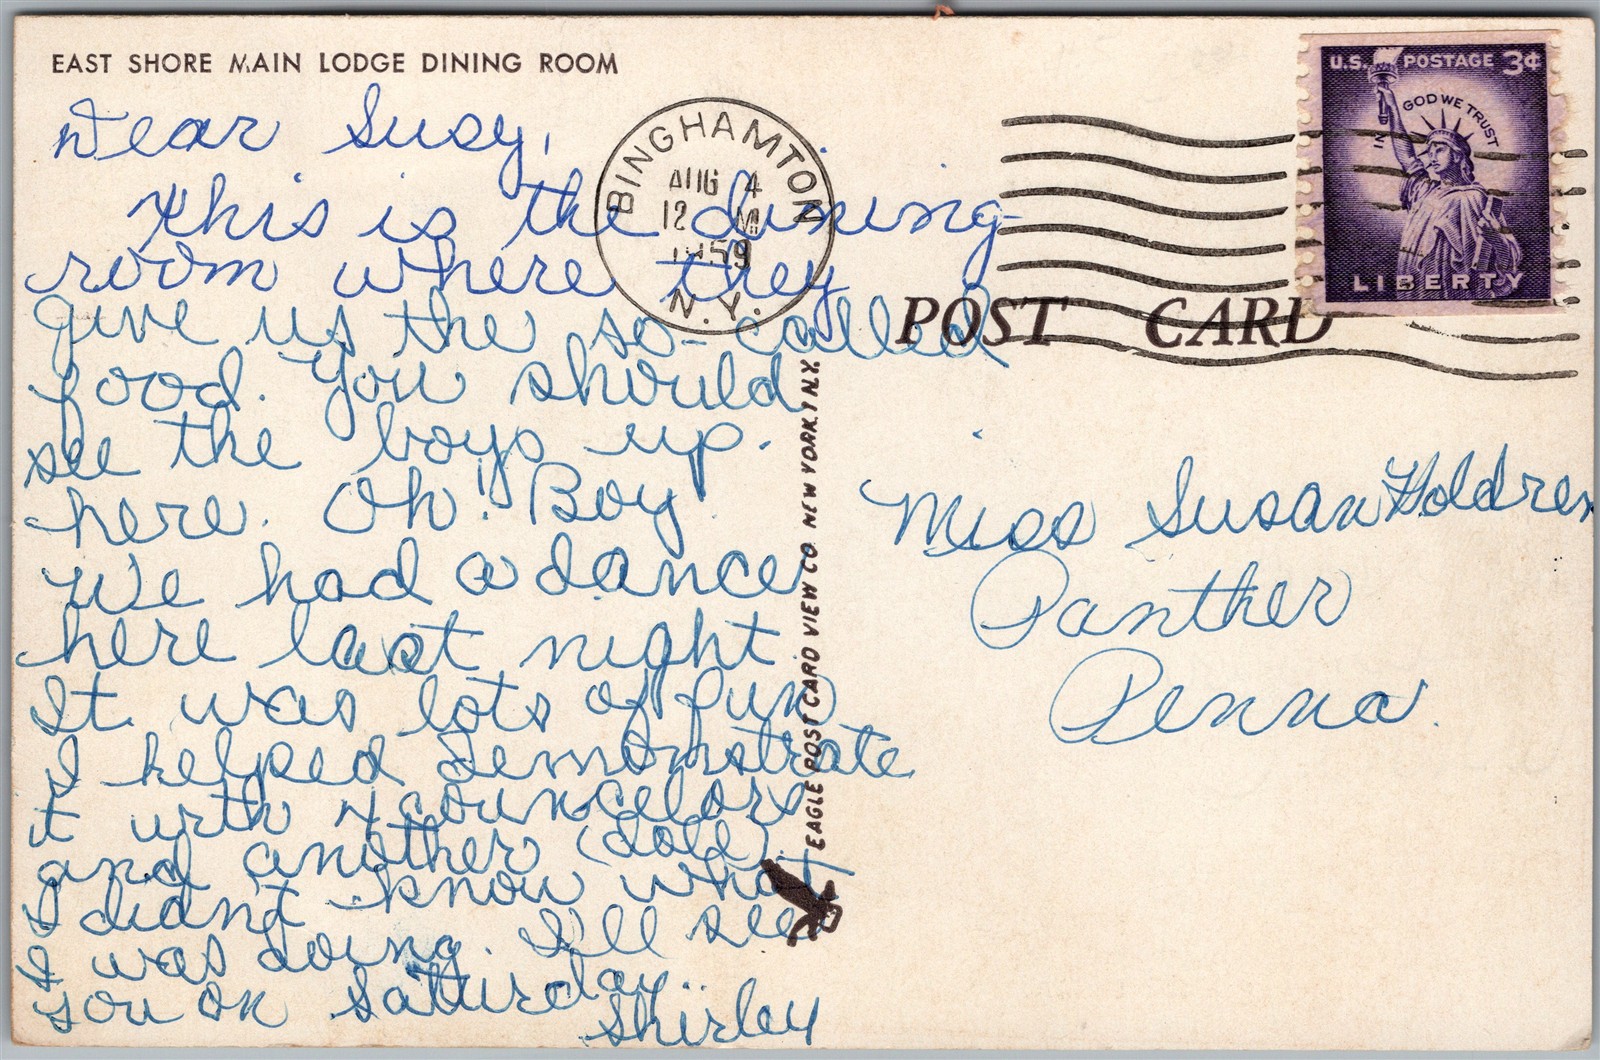 EAST SHORE MAIN LODGE DINING ROOM
Dear Susy,
This is the dining-
room where they
give us the so-called
food. You should
see the boys up.
here. Oh! Boy!
We had a dance
here last night
It was lots of fun
I helped demonstrate
it with 4 councelors
and another (doll).
I didn't know what
I was doing. I'll see
you on Satturday...
Shirley
BINGHAMTON
AUG 4
12 M
1959
N.Y.
U.S. POSTAGE 3¢
IN GOD WE TRUST
LIBERTY
POST CARD
EAGLE POST CARD VIEW CO. NEW YORK 1 N.Y.
Miss Susan Holdren
Panther
Penna.